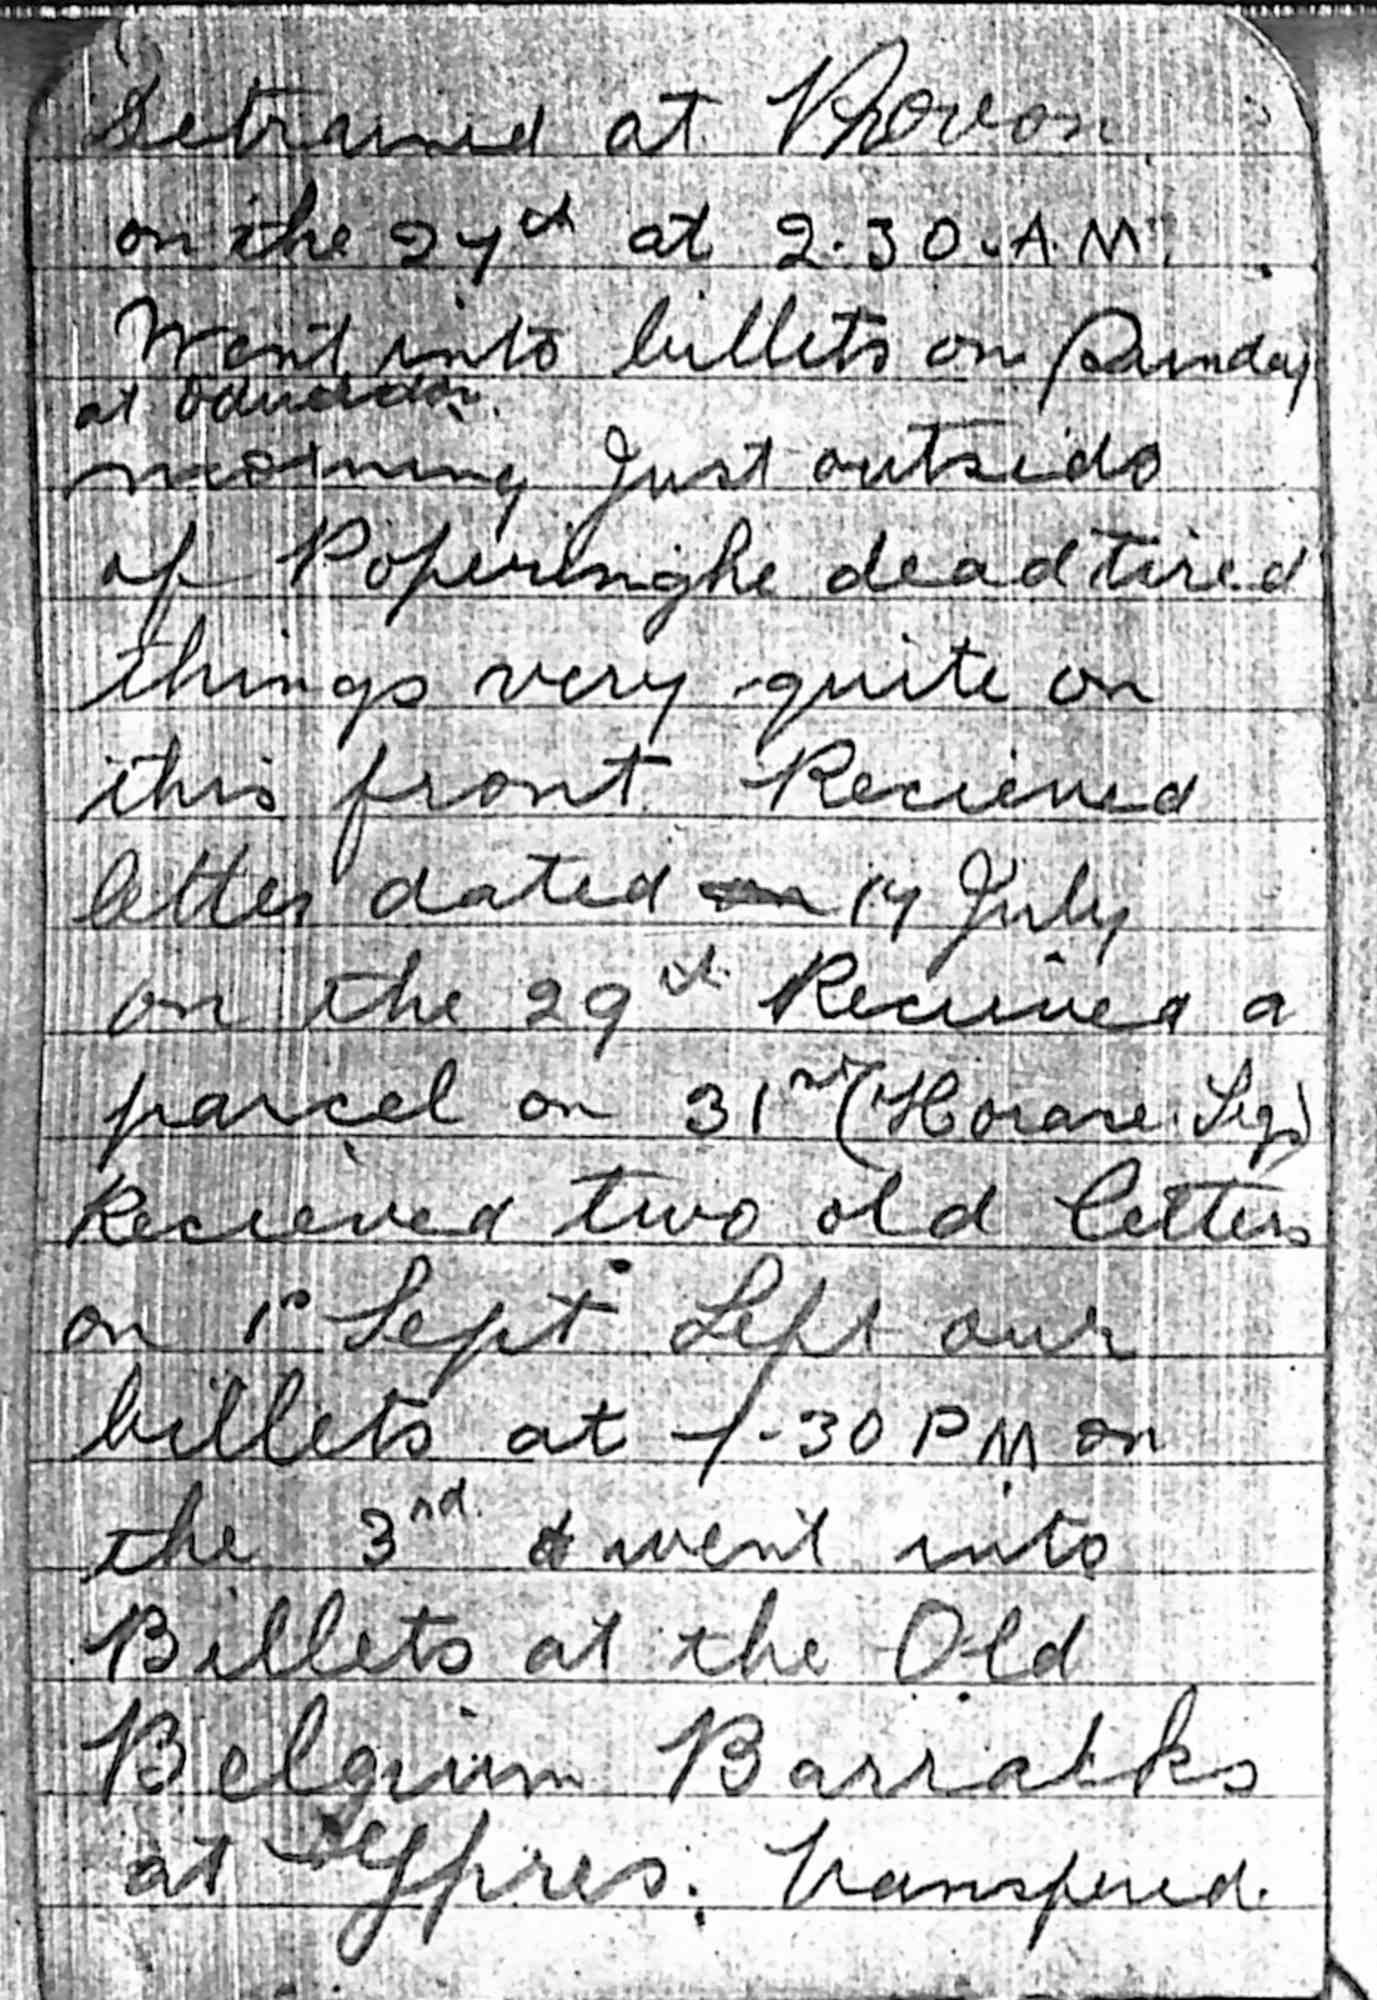 Detrained at Proven
on the 27th at 2.30.A.M.
Went into billets on Sunday
at
morning Just outside
of Poperinghe dead tired
things very quite on
this front Recieved
letter dated 17 July
on the 29th Recieved a
parcel on 31st (Horace
Recieved two old letters
on 1st Sept Left our
billets at 7.30 PM on
the 3nd & went into
Billets at the Old
Belgium Barracks
at Ypres. Transfered.